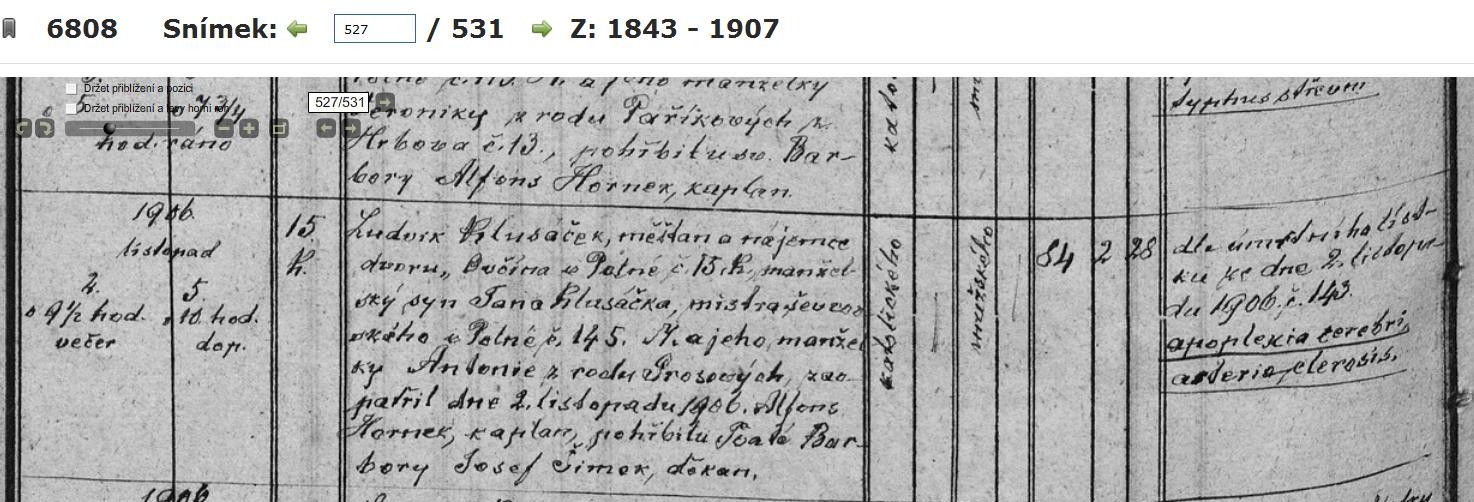 6808 Snímek: 527 / 531 Z: 1843 - 1907
Držet přiblížení a pozici
Držet přiblížení a levý horní roh
527/531
5. 7 3/4
hod. ráno
manželky
Veroniky z rodu Paříkových z
Hrbova č. 13., pohřbil u sv. Bar-
bory Alfons Hornek, kaplan.
typhus střevní
1906.
listopad
2. 5.
o 9½ hod. 10. hod.
večer dop.
15
h.
Ludvík Klusáček, měšťan a nájemce
dvoru, Ovčína v Polné č. 15. h., manžel-
ský syn Jana Klusáčka, mistra ševcov-
ského v Polné č. 145. M. a jeho manžel
ky Antonie z rodu Prosových, zao-
patřil dne 2. listopadu 1906. Alfons
Hornek, kaplan, pohřbil u Svaté Bar-
bory Josef Šimek, děkan.
katolického
mužského
84 2 28
dle úmrtního líst-
ku ze dne 2. listopa-
du 1906. č. 143.
apoplexia cerebri,
arteriosclerosis.
1906